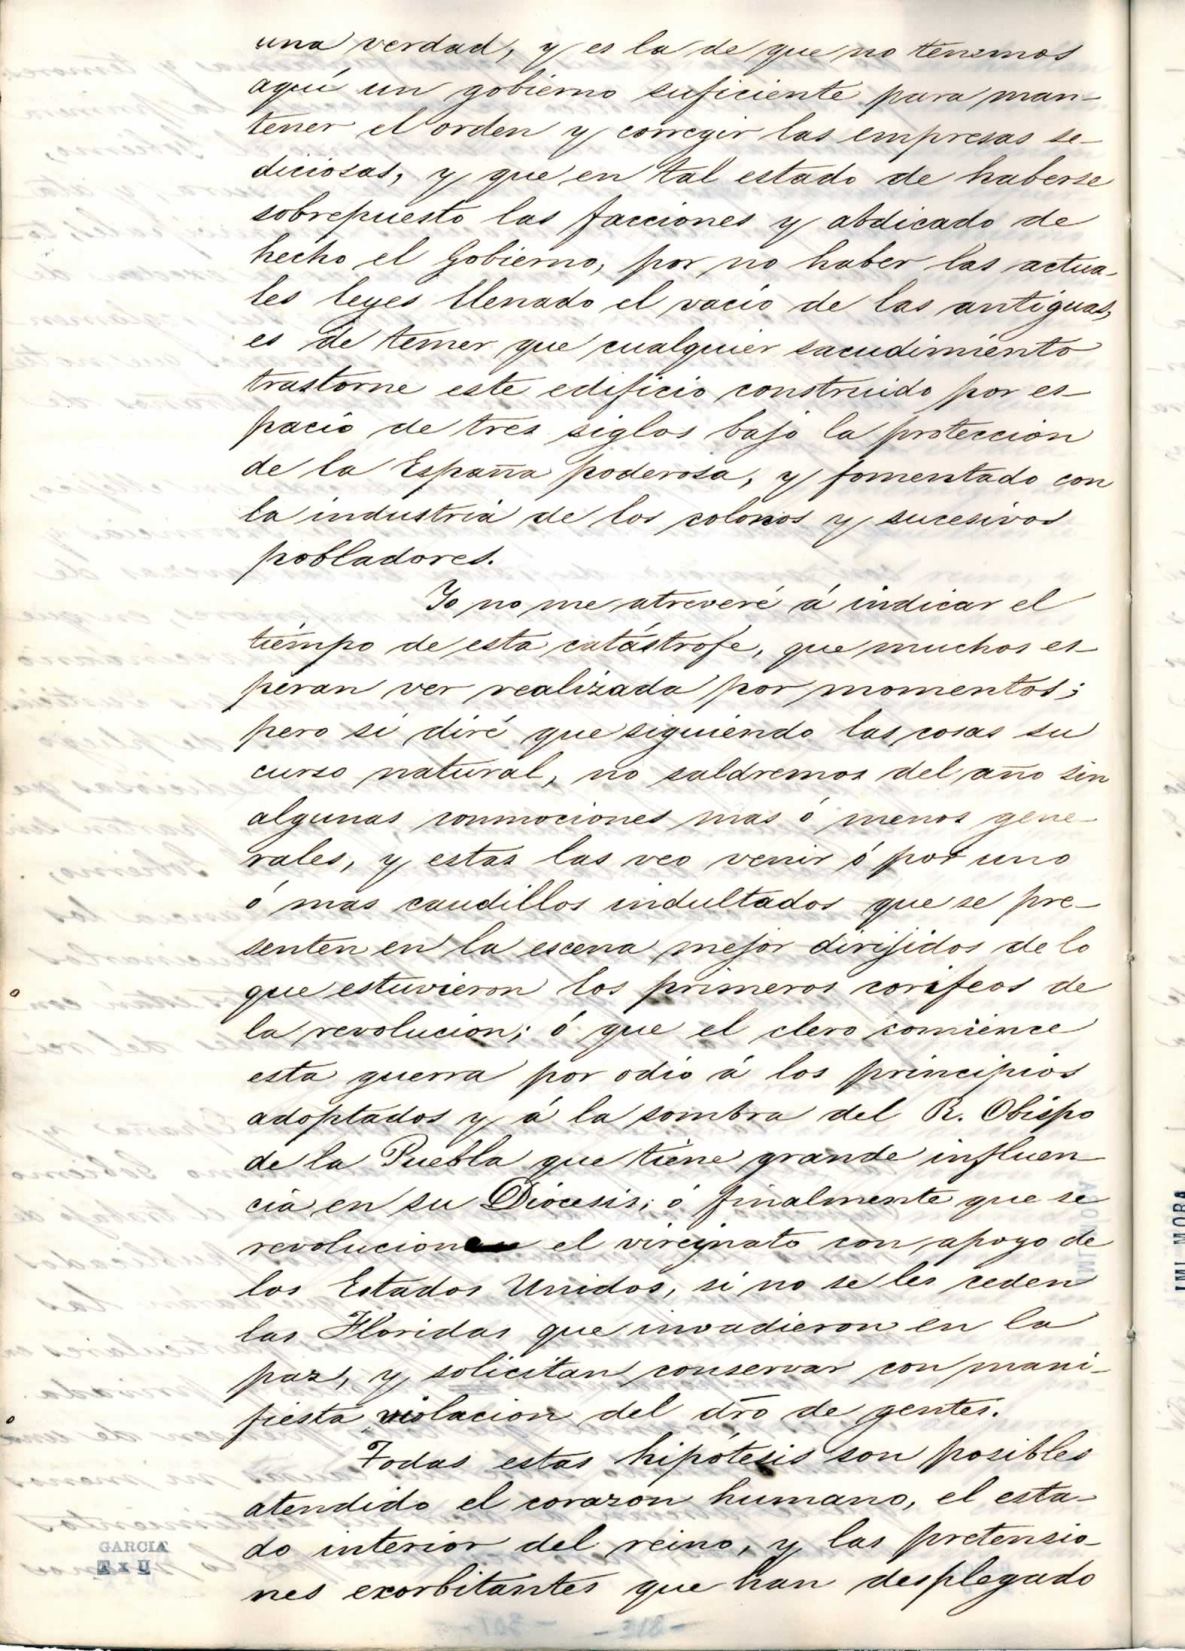 una verdad, y es la de que no tenemos
aquí un gobierno suficiente para man-
tener el orden y corregir las empresas se-
diciosas, y que en tal estado de haberse
sobrepuesto las facciones y abdicado de
hecho el Gobierno, por no haber las actua-
les leyes llenado el vacio de las antiguas,
es de temer que cualquier sacudimiento
trastorne este edificio construido por es-
pacio de tres siglos bajo la proteccion
de la España poderosa, y fomentado con
la industria de los colonos y sucesivos
pobladores.
Yo no me atreveré á indicar el
tiempo de esta catástrofe, que muchos es-
peran ver realizada por momentos;
pero si diré que siguiendo las cosas su
curso natural, no saldremos del año sin
algunas conmociones mas ó menos gene-
rales, y estas las veo venir ó por uno
ó mas caudillos indultados que se pre-
senten en la escena mejor dirijidos de lo
que estuvieron los primeros corifeos de
la revolucion; ó que el clero comience
esta guerra por odio á los principios
adoptados y á la sombra del R. Obispo
de la Puebla que tiene grande influen-
cia en su Diócesis; ó finalmente que se
revolucione el vireynato con apoyo de
los Estados Unidos, si no se les ceden
las Floridas que invadieron en la
paz, y solicitan conservar con mani-
fiesta violacion del dro de gentes.
Todas estas hipótesis son posibles
atendido el corazon humano, el esta-
do interior del reino, y las pretensio-
nes exorbitantes que han desplegado
GARCIA
IMI MORA